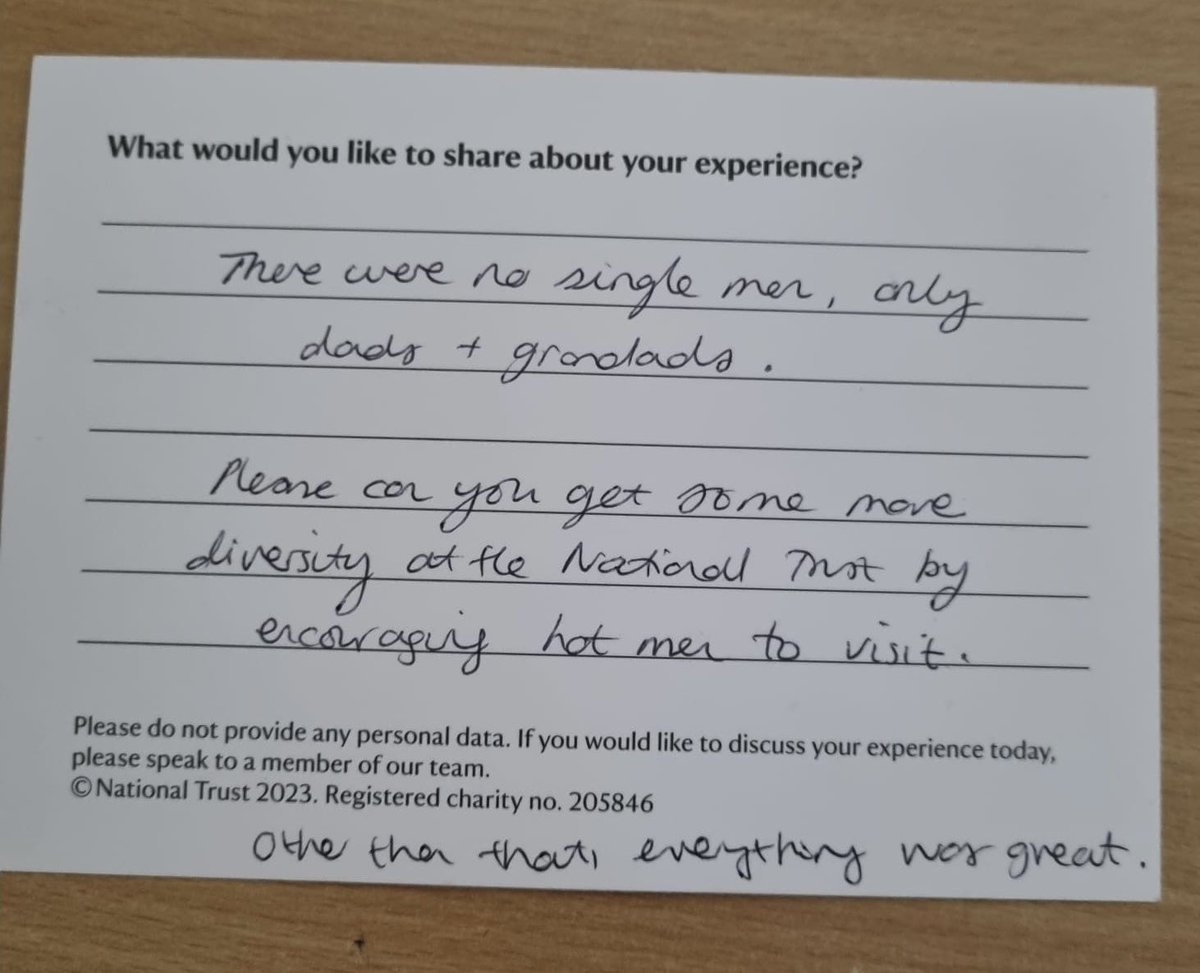 What would you like to share about your experience?
There were no single men, only
dads + grandads.
Please can you get some more
diversity at the National Trust by
encouraging hot men to visit.
Please do not provide any personal data. If you would like to discuss your experience today,
please speak to a member of our team.
© National Trust 2023. Registered charity no. 205846
Other than that, everything was great.